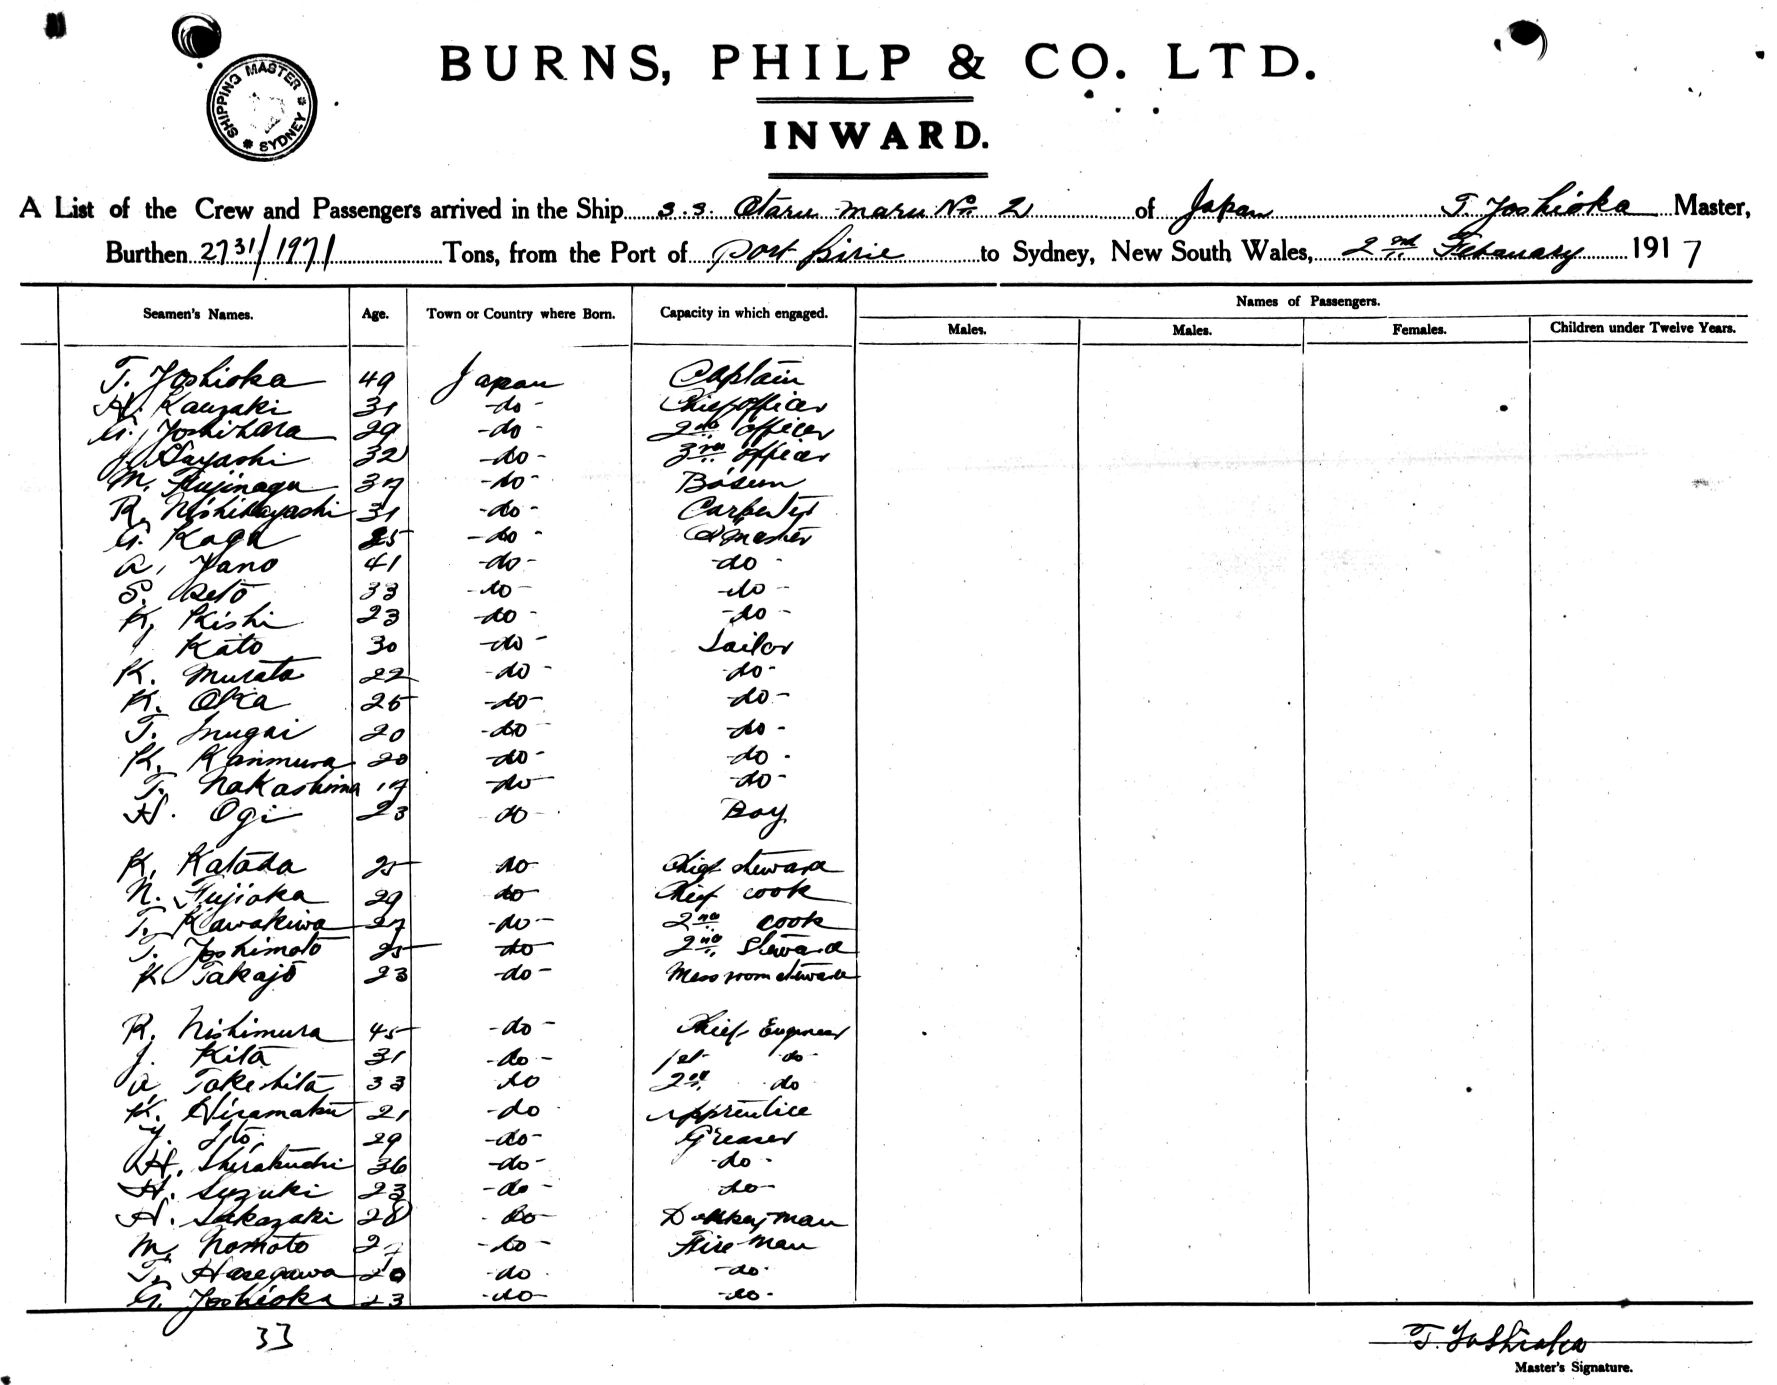 BURNS, PHILP & CO. LTD.
SHIPPING MASTER * SYDNEY *
INWARD.
A List of the Crew and Passengers arrived in the Ship s.s. Otaru maru No. 2 of Japan T. Yoshioka Master,
Burthen 2731/1971 Tons, from the Port of Port Pirie to Sydney, New South Wales, 2nd 1917
Names of Passengers.
Seamen's Names. Age. Town or Country where Born. Capacity in which engaged. Males. Males. Females. Children under Twelve Years.
T. Yoshioka 49 Japan Captain
H. Kauzaki 31 -do- Chief officer
G. Yoshihara 29 -do- 2nd officer
J. Hayashi 32 -do- 3rd officer
M. Fujinaga 37 -do- Bosun
R. Nishibayashi 31 -do- Carpenter
G. Kaga 25 -do- Qr master
A. Yano 41 -do- -do-
S. 33 -do- -do-
K. Kishi 23 -do- -do-
Kato 30 -do- Sailor
K. Murata 22 -do- -do-
K. Oka 25 -do- -do-
T. Inugai 20 -do- -do-
K. Kanmura 20 -do- -do-
T. Nakashima 17 -do- -do-
H. Ogi 23 do- Boy
K. Katada 25 do Chief steward
N. Fujioka 29 do Chief cook
T. Kawakiwa 27 -do- 2nd cook
T. Yoshimoto 25 do 2nd Steward
K. Takajo 23 -do- Mess room steward
R. Nishimura 45 -do- Chief Engineer
J. Kita 31 -do- 1st do-
A. Takeshita 33 do 2nd do
K. Hiramatu 21 -do Apprentice
Y. Ito 29 -do- Greaser
H. Shirakuchi 36 -do- -do-
H. Suzuki 23 -do- do-
H. Sakazaki 28 -do- Donkey man
M. Nomoto 27 -do- Fire man
T. Hasegawa 20 -do -do-
G. Yoshioka 23 -do- -do-
33
T. Yoshioka
Master's Signature.